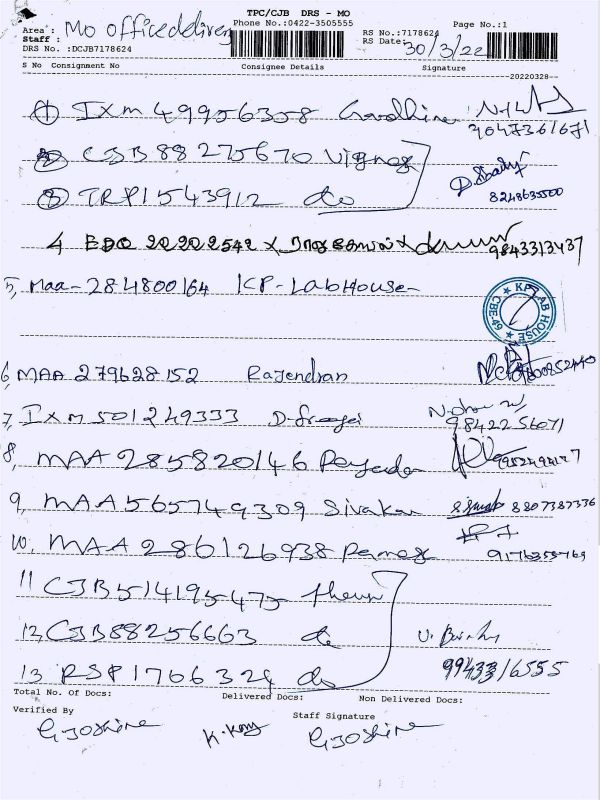 TPC/CJB DRS - MO
Phone No.:0422-3505555
Page No.:1
Area : Mo office delivery
Staff :
DRS No. :DCJB7178624
RS No.:7178624
RS Date: 30/3/22
S No Consignment No Consignee Details Signature
20220328
1 IXM 49956358
9047361671
2 CJB 88275670 Vignesh
3 TRP1543912 do
8248635500
4 EDO 20202542 x x
9843313437
5, Maa-284800164 KP-LabHouse-
KP LAB HOUSE CBE-49
6, MAA 279628152 Rajendran
7, IXM 501249333
98422 56071
8, MAA 285820146
9, MAA 565749309 Sivakan 8807387336
10, MAA 286126938 Ramesh
9176358769
11 CJB514195475
12, CJB88256663 do
13 RSP1766324 do
9943316555
Total No. of Docs: Delivered Docs: Non Delivered Docs:
Verified By Staff Signature